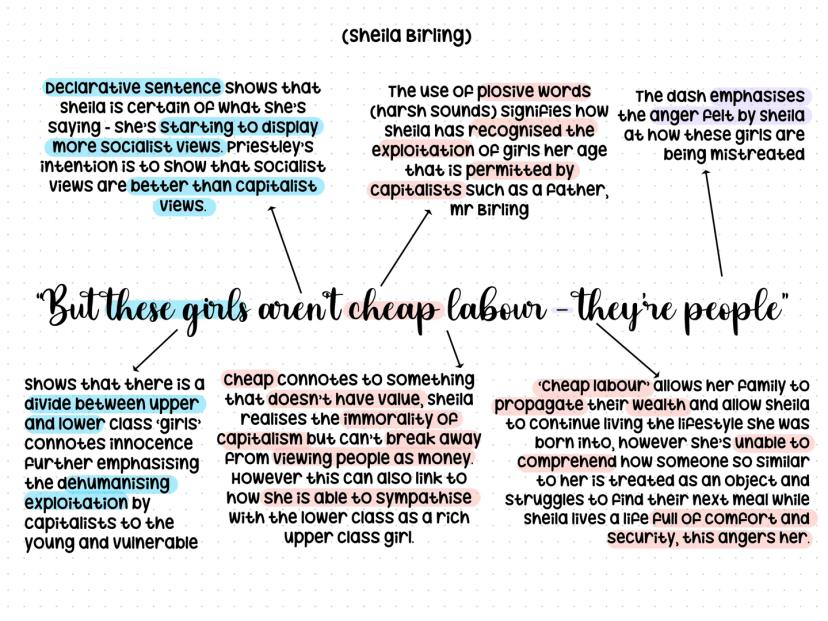 (Sheila Birling)
Declarative sentence shows that
Sheila is certain of what she's
saying - she's starting to display
more socialist views. Priestley's
intention is to show that socialist
views are better than capitalist
views.
The use of plosive words
(harsh sounds) signifies how
Sheila has recognised the
exploitation of girls her age
that is permitted by
capitalists such as a father,
Mr Birling
The dash emphasises
the anger felt by Sheila
at how these girls are
being mistreated
"But these girls aren't cheap labour - they're people"
Shows that there is a
divide between upper
and lower class 'girls'
connotes innocence
further emphasising
the dehumanising
exploitation by
capitalists to the
young and vulnerable
Cheap connotes to something
that doesn't have value, Sheila
realises the immorality of
capitalism but can't break away
from viewing people as money.
However this can also link to
how she is able to sympathise
with the lower class as a rich
upper class girl.
'Cheap labour' allows her family to
propagate their wealth and allow Sheila
to continue living the lifestyle she was
born into, however she's unable to
comprehend how someone so similar
to her is treated as an object and
struggles to find their next meal while
Sheila lives a life full of comfort and
security, this angers her.